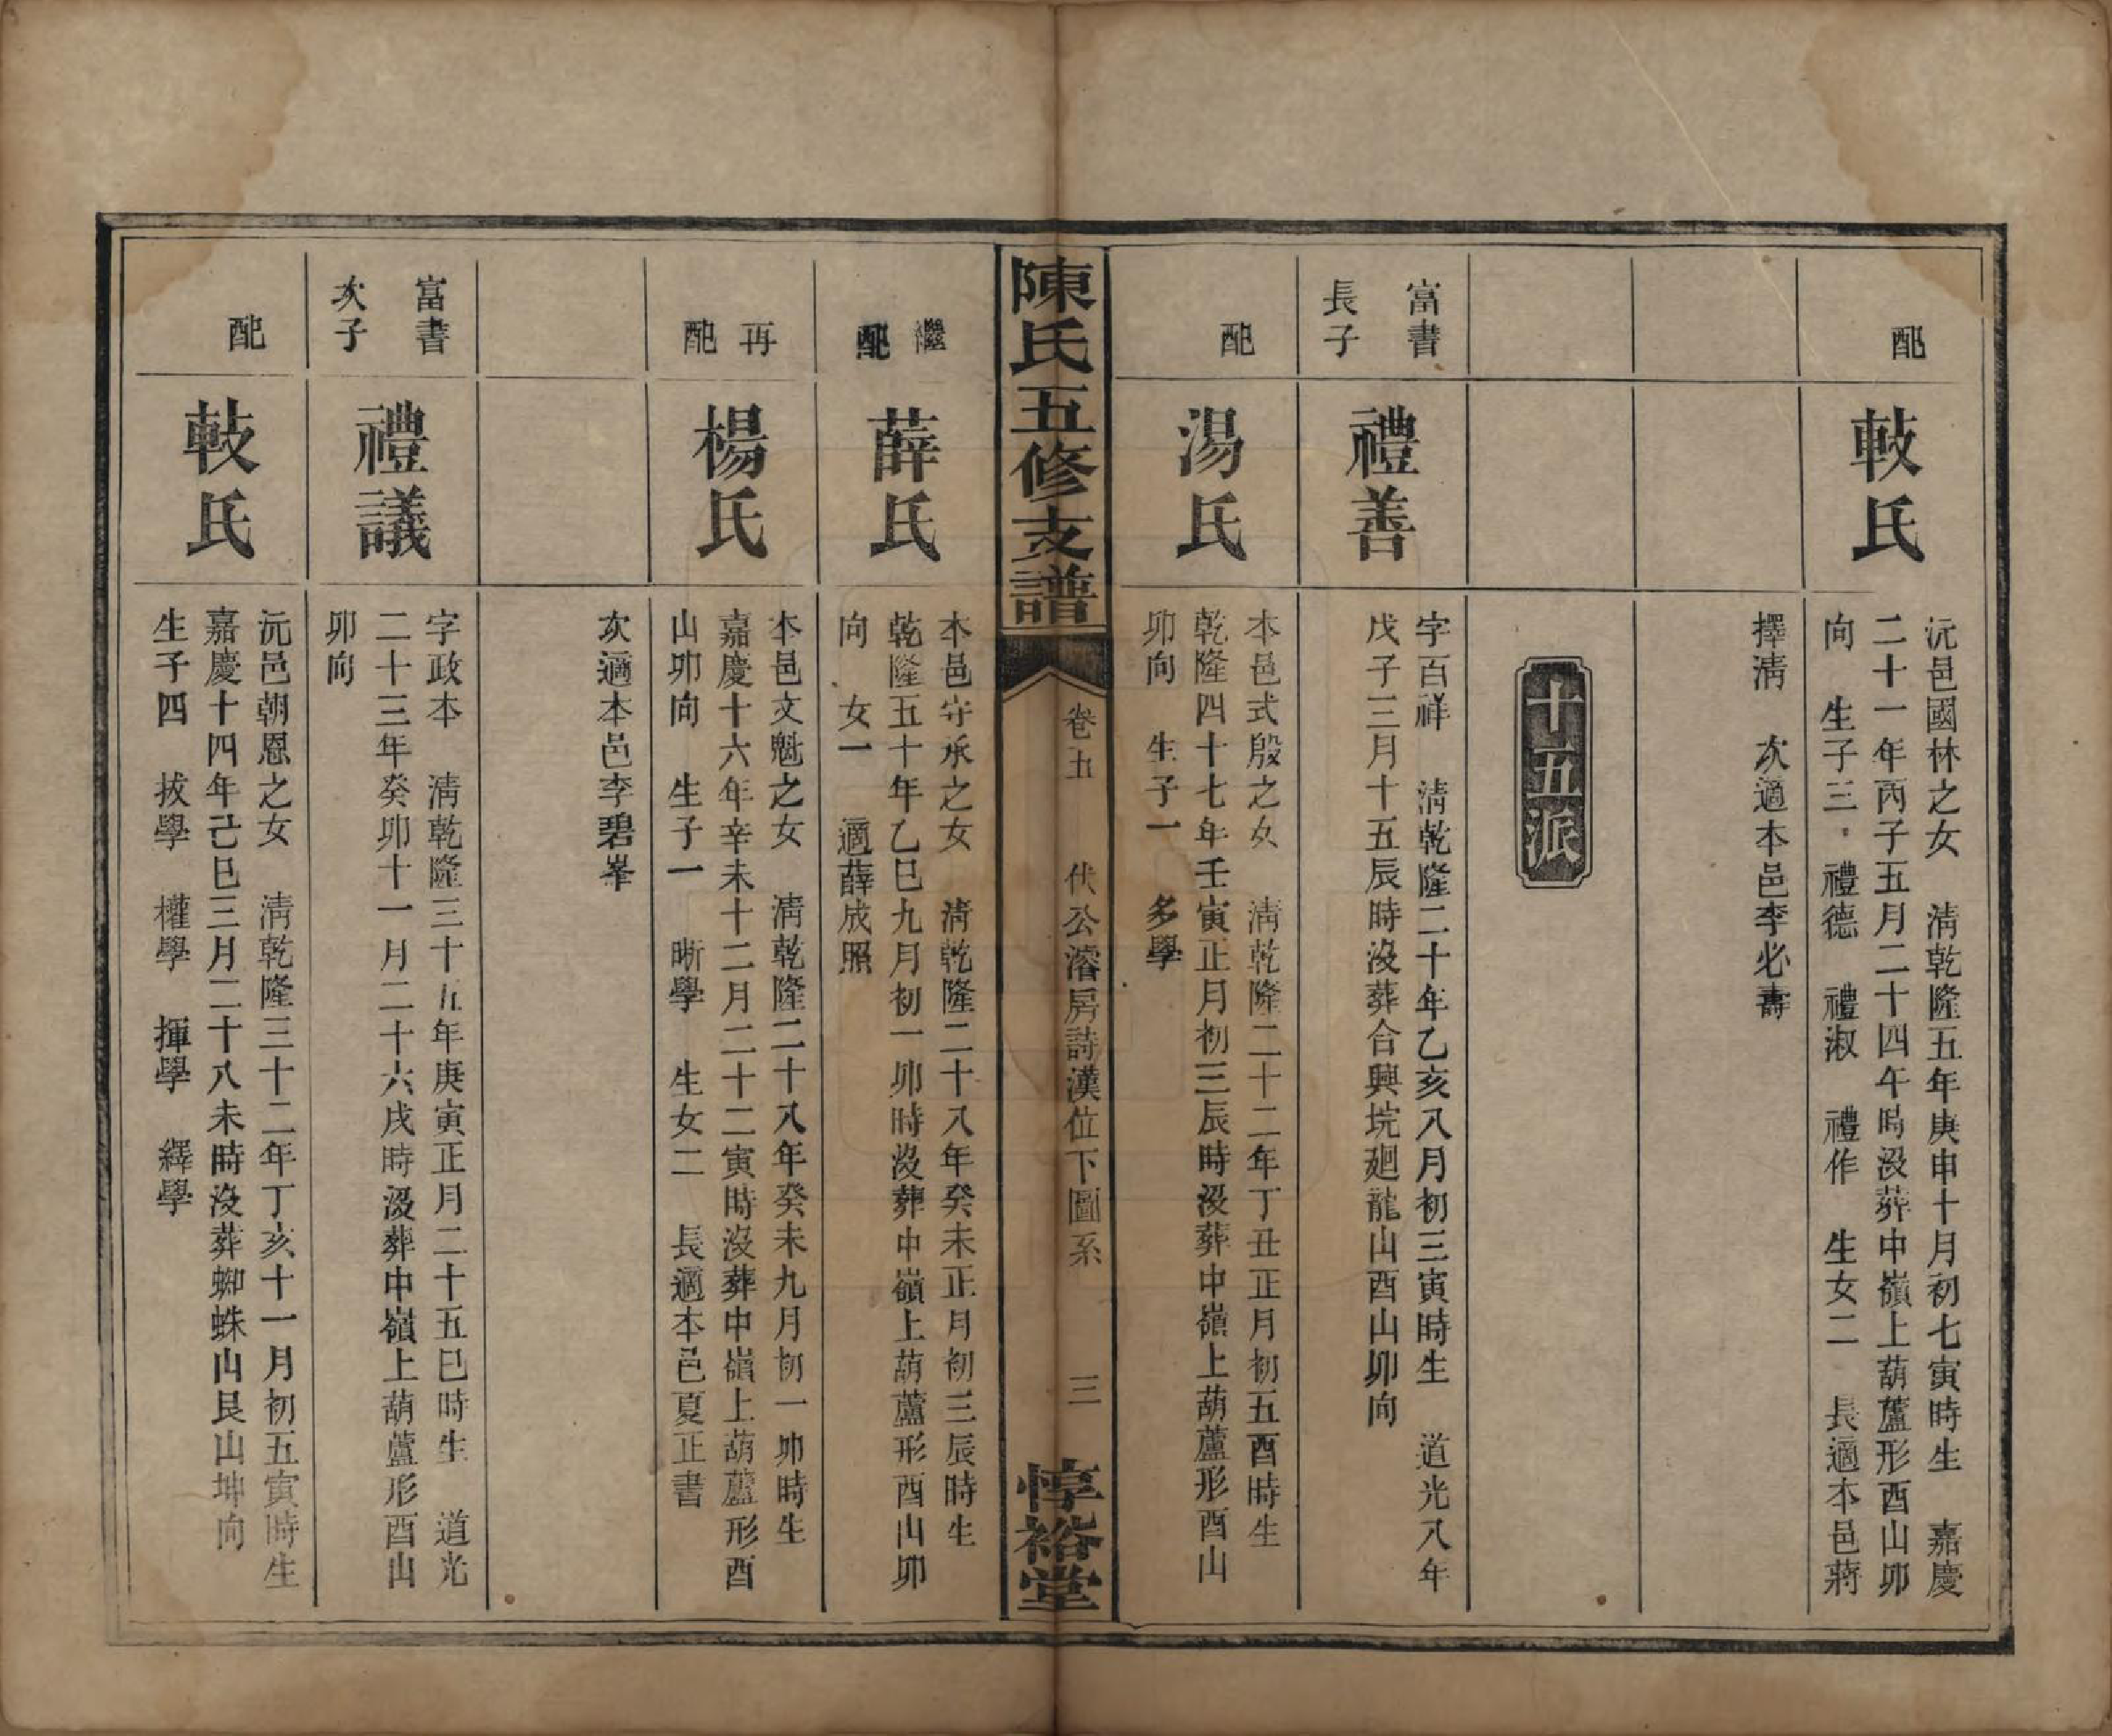 配
㪇氏
沅邑國林之女　清乾隆五年庚申十月初七寅時生　嘉慶
二十一年丙子五月二十四午時沒葬中嶺上葫蘆形酉山卯
向　生子三　禮德　禮淑　禮作　生女二　長適本邑蔣
擇清　次適本邑李必壽
十五派
富書
長子
禮善
字百祥　清乾隆二十年乙亥八月初三寅時生　道光八年
戊子三月十五辰時沒葬合興垸廻龍山酉山卯向
配
湯氏
本邑式殷之女　清乾隆二十二年丁丑正月初五酉時生
乾隆四十七年壬寅正月初三辰時沒葬中嶺上葫蘆形酉山
卯向　生子一　多學
陳氏五修支譜
卷五　伏公濬房詩漢位下圖系　三
惇裕堂
繼配
薛氏
本邑守承之女　清乾隆二十八年癸未正月初三辰時生
乾隆五十年乙巳九月初一卯時沒葬中嶺上葫蘆形酉山卯
向　女一　適薛成照
再配
楊氏
本邑文魁之女　清乾隆二十八年癸未九月初一卯時生
嘉慶十六年辛未十二月二十二寅時沒葬中嶺上葫蘆形酉
山卯向　生子一　晰學　生女二　長適本邑夏正書
次適本邑李碧峯
富書
次子
禮議
字政本　清乾隆三十五年庚寅正月二十五巳時生　道光
二十三年癸卯十一月二十六戌時沒葬中嶺上葫蘆形酉山
卯向
配
㪇氏
沅邑朝恩之女　清乾隆三十二年丁亥十一月初五寅時生
嘉慶十四年己巳三月二十八未時沒葬蜘蛛山艮山坤向
生子四　拔學　權學　揮學　繹學